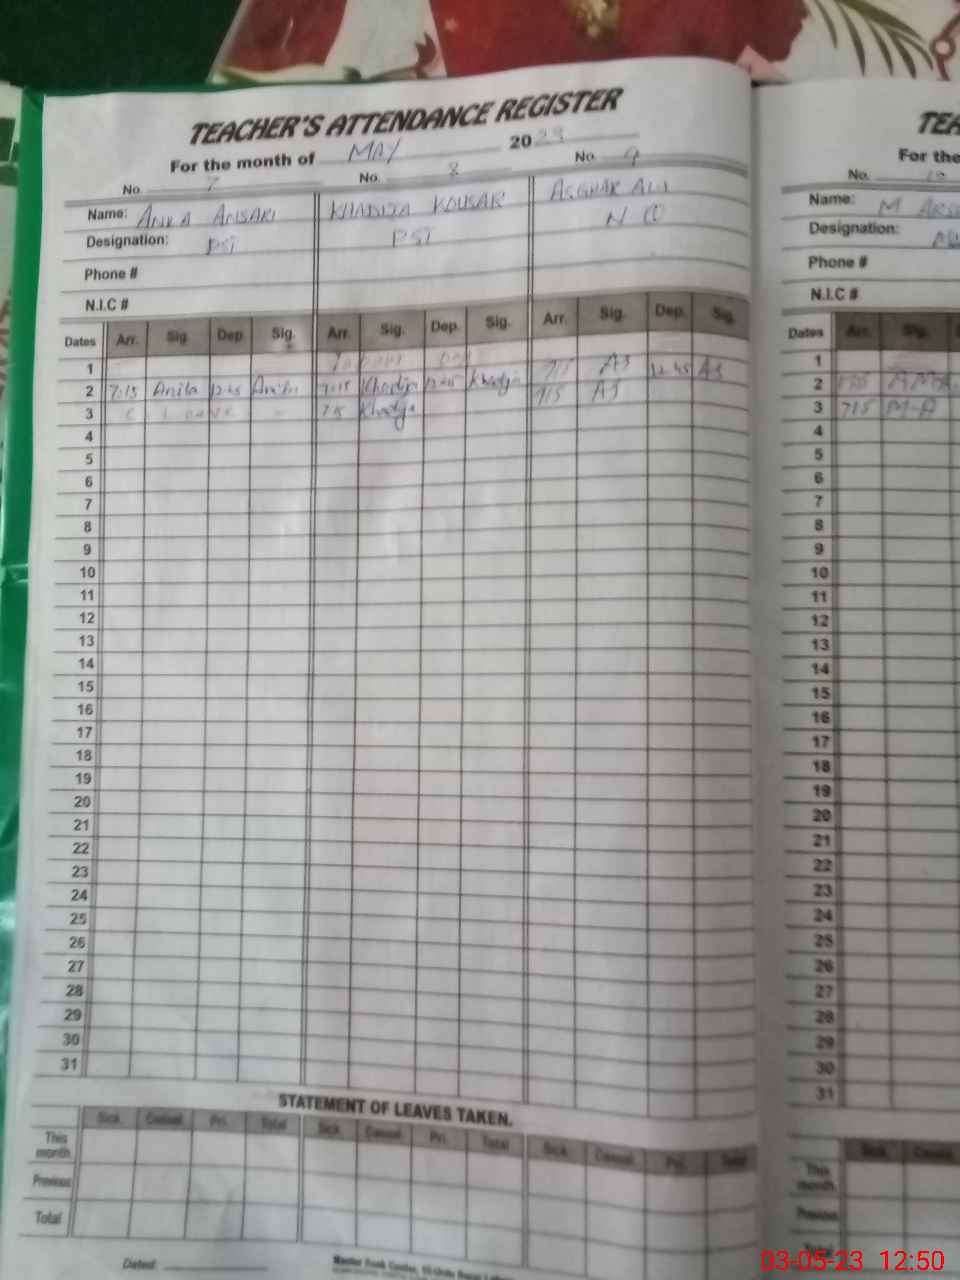 TEACHER'S ATTENDANCE REGISTER
For the month of MAY 2023
No. 7 No. 8 No. 9
Name: ANILA ANSARI KHADIJA KOUSAR ASGHAR ALI
Designation: PST PST N Q
Phone #
N.I.C #
Dates Arr. Sig. Dep. Sig. Arr. Sig. Dep. Sig. Arr. Sig. Dep. Sig.
1 LABOUR DAY
2 7:15 Anila 12 45 Anila 7:15 Khadija 12 45 Khadija 715 AS 12 45 AS
3 C LEAVE 7:15 Khadija 715 AS
4
5
6
7
8
9
10
11
12
13
14
15
16
17
18
19
20
21
22
23
24
25
26
27
28
29
30
31
STATEMENT OF LEAVES TAKEN.
Sick. Casual. Pri. Total Sick. Casual. Pri. Total Sick. Casual. Pri. Total
This month
Previous
Total
Dated:
TEA
For the
No. 10
Name: M
Designation:
Phone #
N.I.C #
Dates Arr. Sig.
1
2
3 715 M-A
4
5
6
7
8
9
10
11
12
13
14
15
16
17
18
19
20
21
22
23
24
25
26
27
28
29
30
31
Sick. Casual.
This month
Previous
Total
03-05-23 12:50